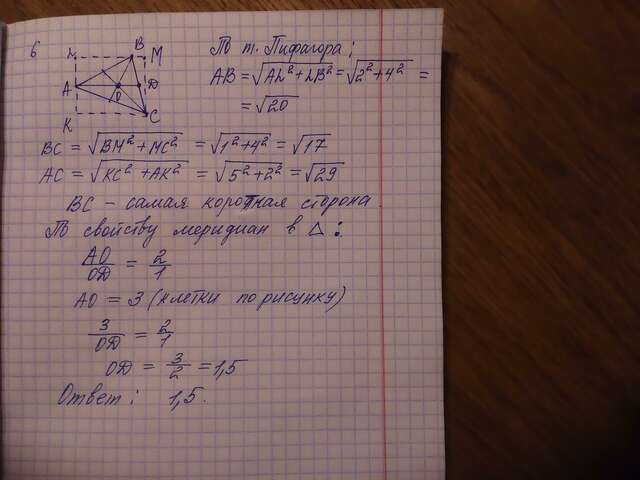 6
L B M
A O D
K C
По т. Пифагора:
AB = √AL² + LB² = √2² + 4² =
= √20
BC = √BM² + MC² = √1² + 4² = √17
AC = √KC² + AK² = √5² + 2² = √29
BC – самая короткая сторона.
По свойству меридиан в △:
AO/OD = 2/1
AO = 3 (клетки по рисунку)
3/OD = 2/1
OD = 3/2 = 1,5
Ответ: 1,5.